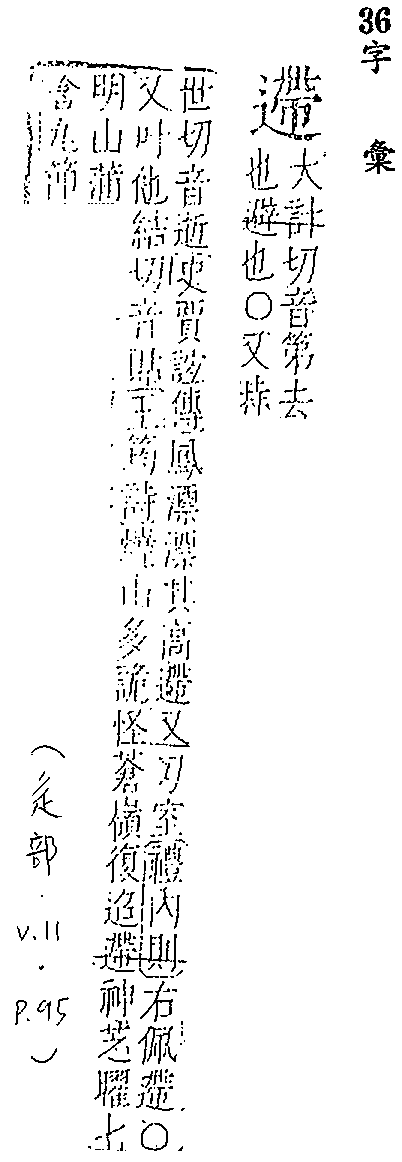 36 字彙
遰
大計切音第去
也避也○又
世切音逝史賈誼傳鳳漂漂其高遰又刀室禮內則右佩遰○
又叶他結切音貼王筠詩燒山多詭怪蒼嶺復迢遰神芝曜七
明山蒲
含九節
(辵部·v.11·p.95)